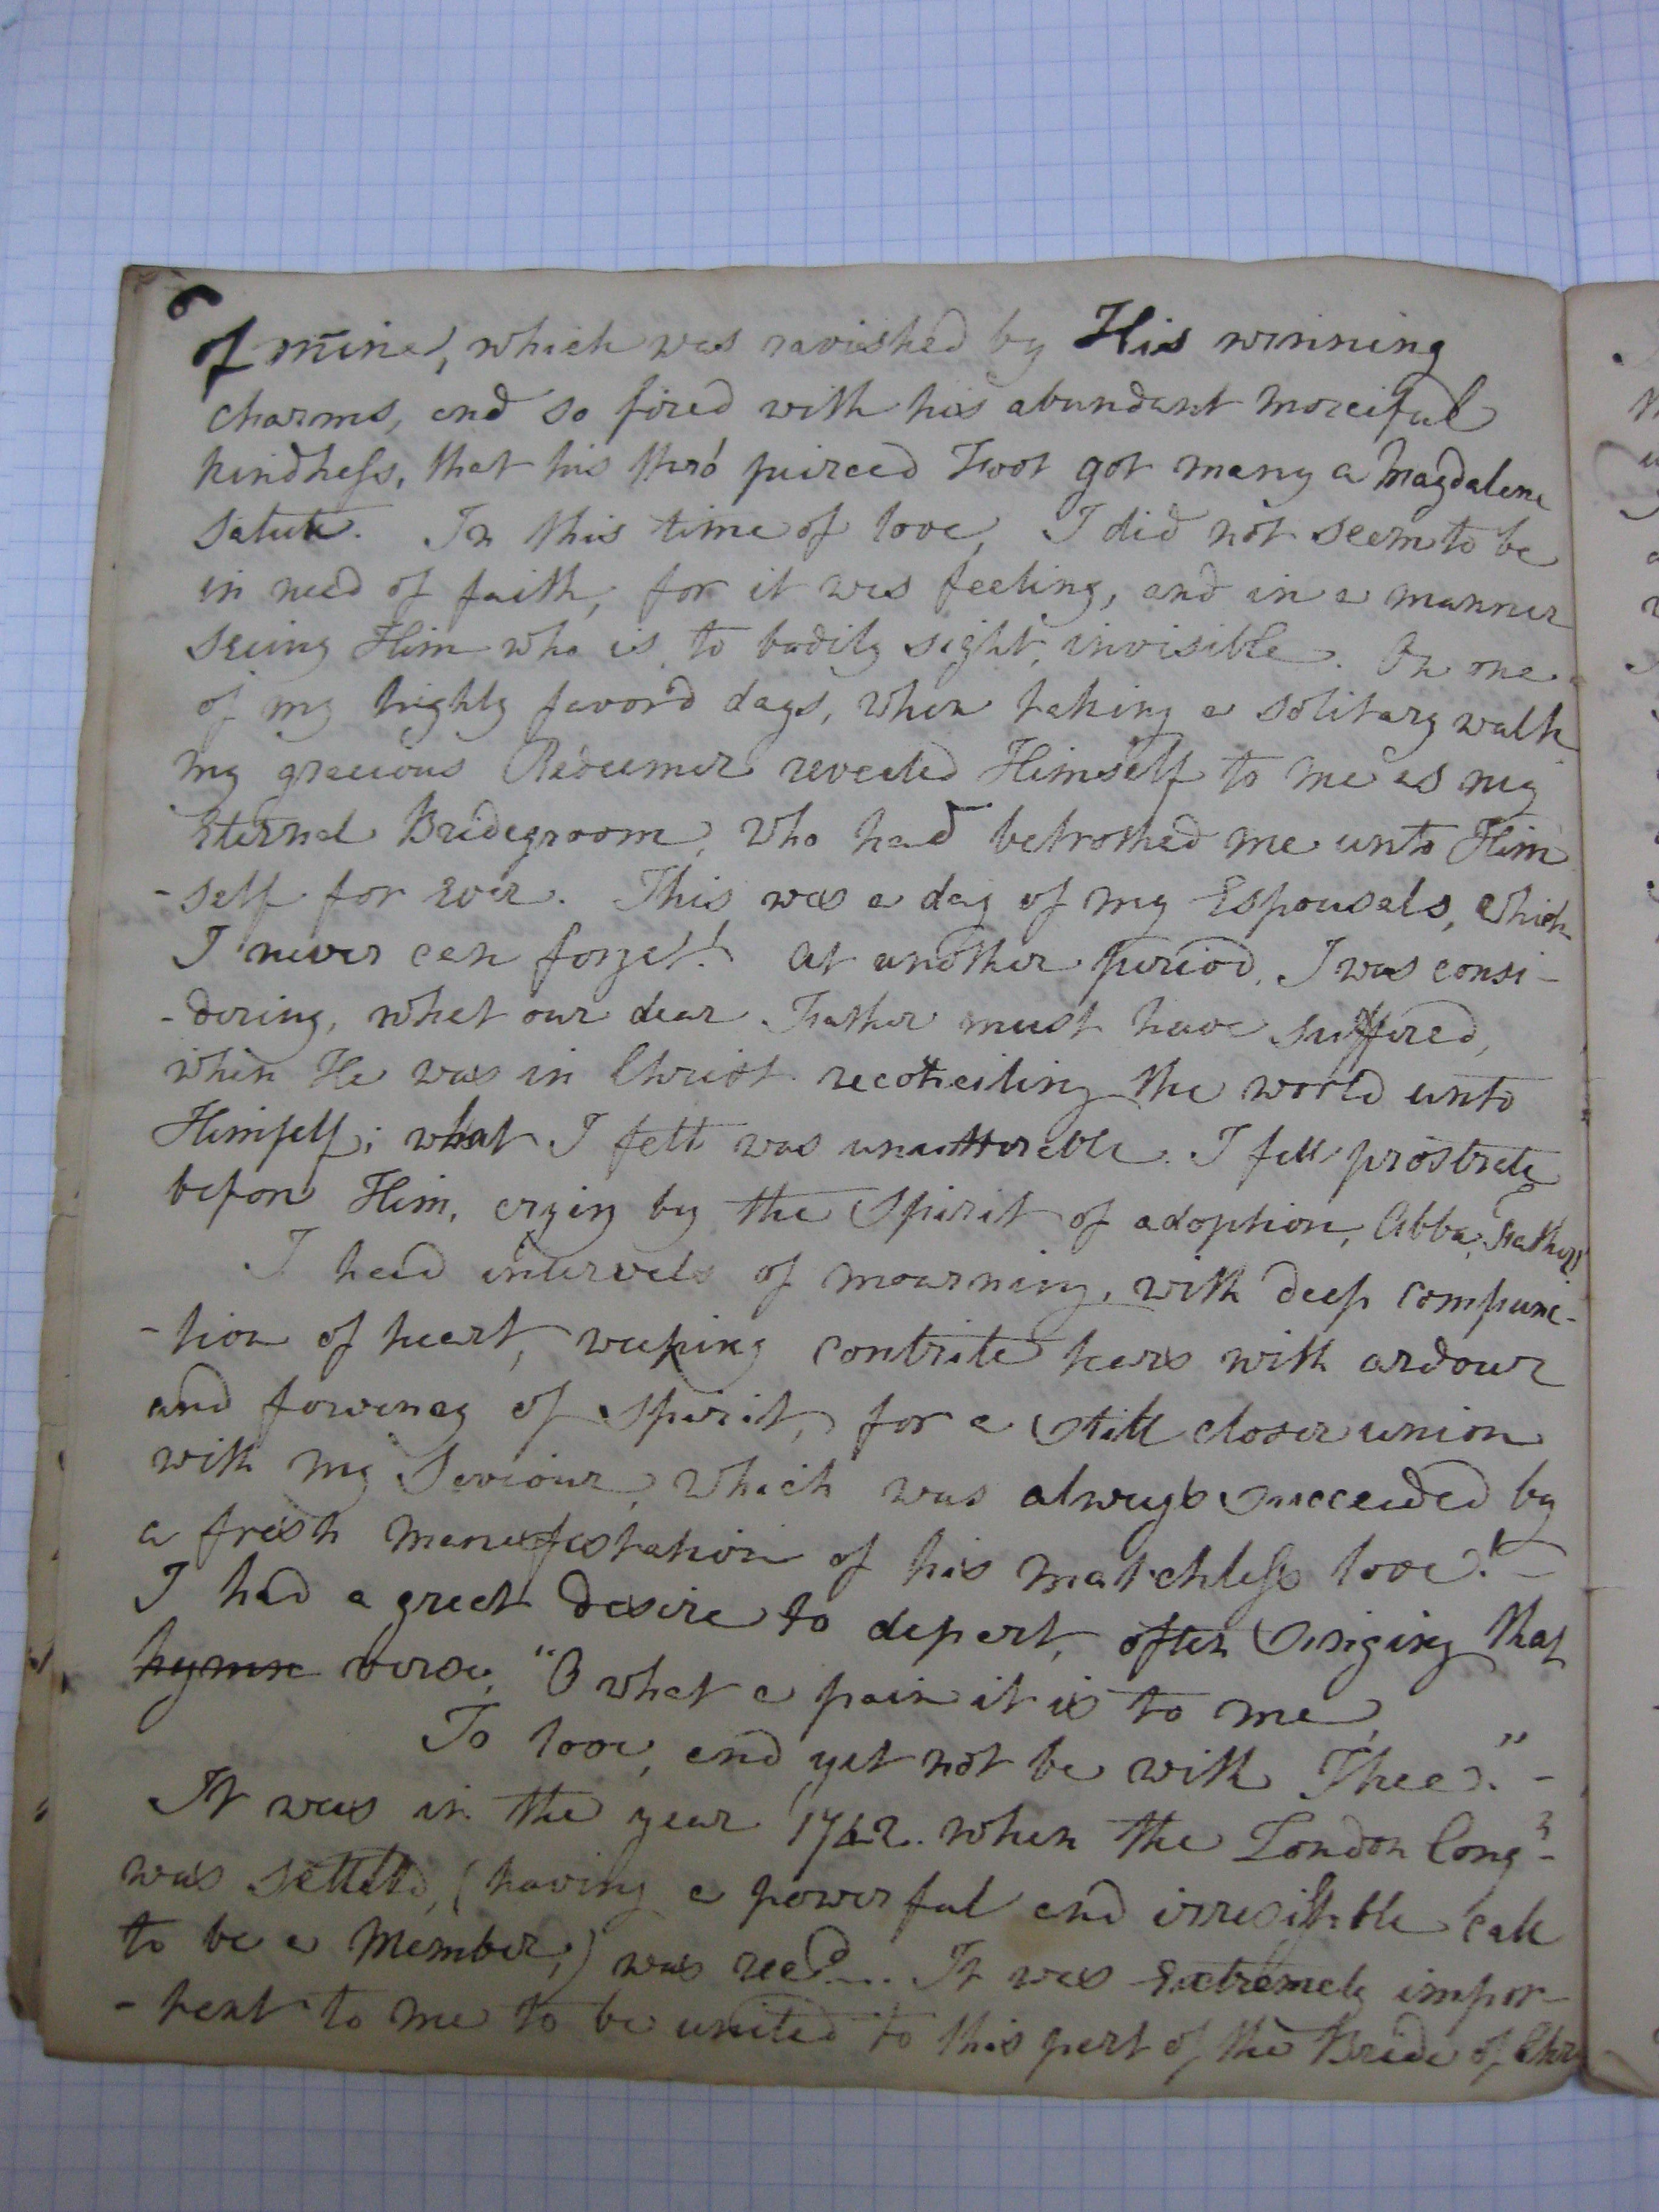 6
of mine, which was ravished by His winning
charms, and so fired with his abundant merciful
kindness, that his thro' peirced Foot got many a Magdalene
salute. In this time of love, I did not seem to be
in need of faith, for it was feeling, and in a manner
seeing Him who is, to bodily sight, invisible. On one
of my highly favor'd days, when taking a solitary walk
my gracious Redeemer revealed Himself to me as my
Eternal Bridegroom, who had betrothed me unto Him
-self for ever. This was a day of my Espousals, which
I never can forget! At another period, I was consi-
-dering, what our dear Father must have suffered,
when He was in Christ reconciling the world unto
Himself; what I felt was unutterable. I fell prostrate
before Him, crying by the Spirit of adoption, Abba, Father!
I had intervals of mourning, with deep compunc-
-tion of heart, weeping contrite tears with ardour
and fervency of spirit, for a still closer union
with my Saviour, which was always succeeded by
a fresh manifestation of his matchless love! -
I had a great desire to depart, often singing that
hymn verse, "O what a pain it is to me,
To love, and yet not be with Thee." -
It was in the year 1742. when the London Congn
was settled, (having a powerful and irresistible call
to be a Member,) was recd... It was extremely impor-
-tant to me to be united to this part of the Bride of Chr